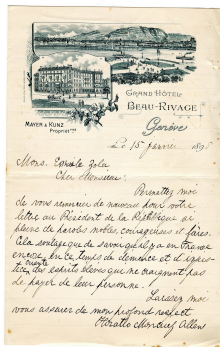 GRAND HÔTEL
BEAU-RIVAGE
Genève
MAYER & KUNZ
Propriét^res
Le 15 janvier 189
Mons. Emile Zola
Cher Monsieur:
Permettez moi
de vous remercier de nouveau pour votre
lettre au Président de la République si
pleine de paroles nobles, courageuses et fières.
a la soulage de savoir qu'il y a en France
encore, en ce temps de démence et d'injus-
tice, des esprits élevés que ne craignent pas
de payer de leur personne.
Laissez moi
vous assurer de mon profond respect